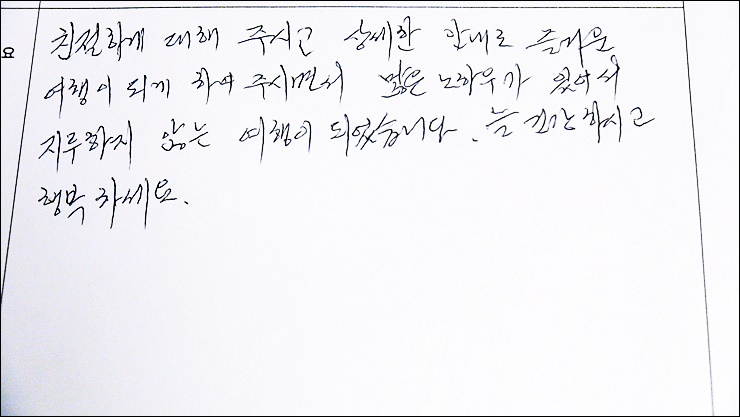 친절하게 대해 주시고 상세한 안내로 즐거운
여행이 되게 하여 주시면서 많은 노하우가 있어서
지루하지 않는 여행이 되었습니다. 늘 건강하시고
행복하세요.
요